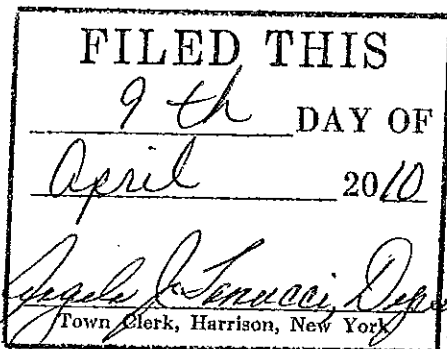 FILED THIS
9th DAY OF
April 2010
Angela
Town Clerk, Harrison, New York